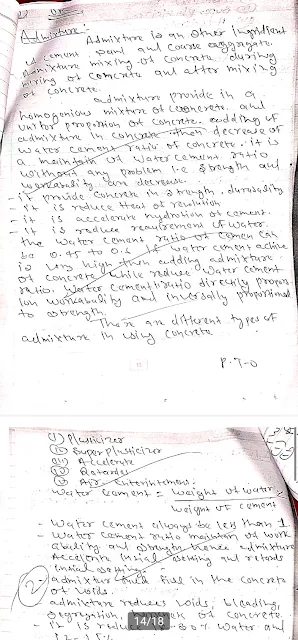 Admixture -
Admixture is an other ingridient
of cement sand and coarse aggregate.
Admixture mixing of concrete during
mixing of concrete and after mixing
of concrete.
admixture provide in a
homogenious mixture of concrete. and
unitor proportion of concrete. adding of
admixture in concrete then decrease of
water cement ratio of concrete. it is
a maintain of water cement ratio
without any problem i.e. strength and
workability are decrease.
- it provide concrete in strength, durability
- it is reduce Heat of
- it is accelerate hydration of cement.
- it is reduce requirement of water.
the water cement ratio of cement can
be 0.45 to 0.6 if water cement
is very high then adding admixture
of concrete while reduce water cement
ratio. Water cement ratio directly propor-
ion workability and inversily proportional
to strength.
There are different types of
admixture in using concrete
P.T.O
(i) Plasticizer
(ii) Super plasticizer
(iii) Accelerate
(iv) Retarder
(v) Air
Water cement = weight of water
weight of cement
- Water cement always be less than 1
- Water cement ratio maintain of work
ability and strength hence admixture
Accelerate insial setting and retards
insial setting
- admixture fill in the concrete
of voids.
admixture reduces voids, bleading,
segregation,
- it is redu 30% water and
14/18